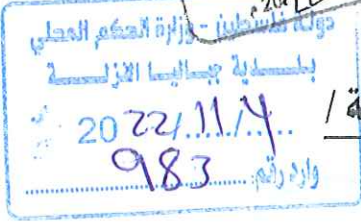 دولة فلسطين - وزارة الحكم المحلي
بلـــدية جبـــاليـــا النزلـــــة
2022/11/4
وارد رقم: 983